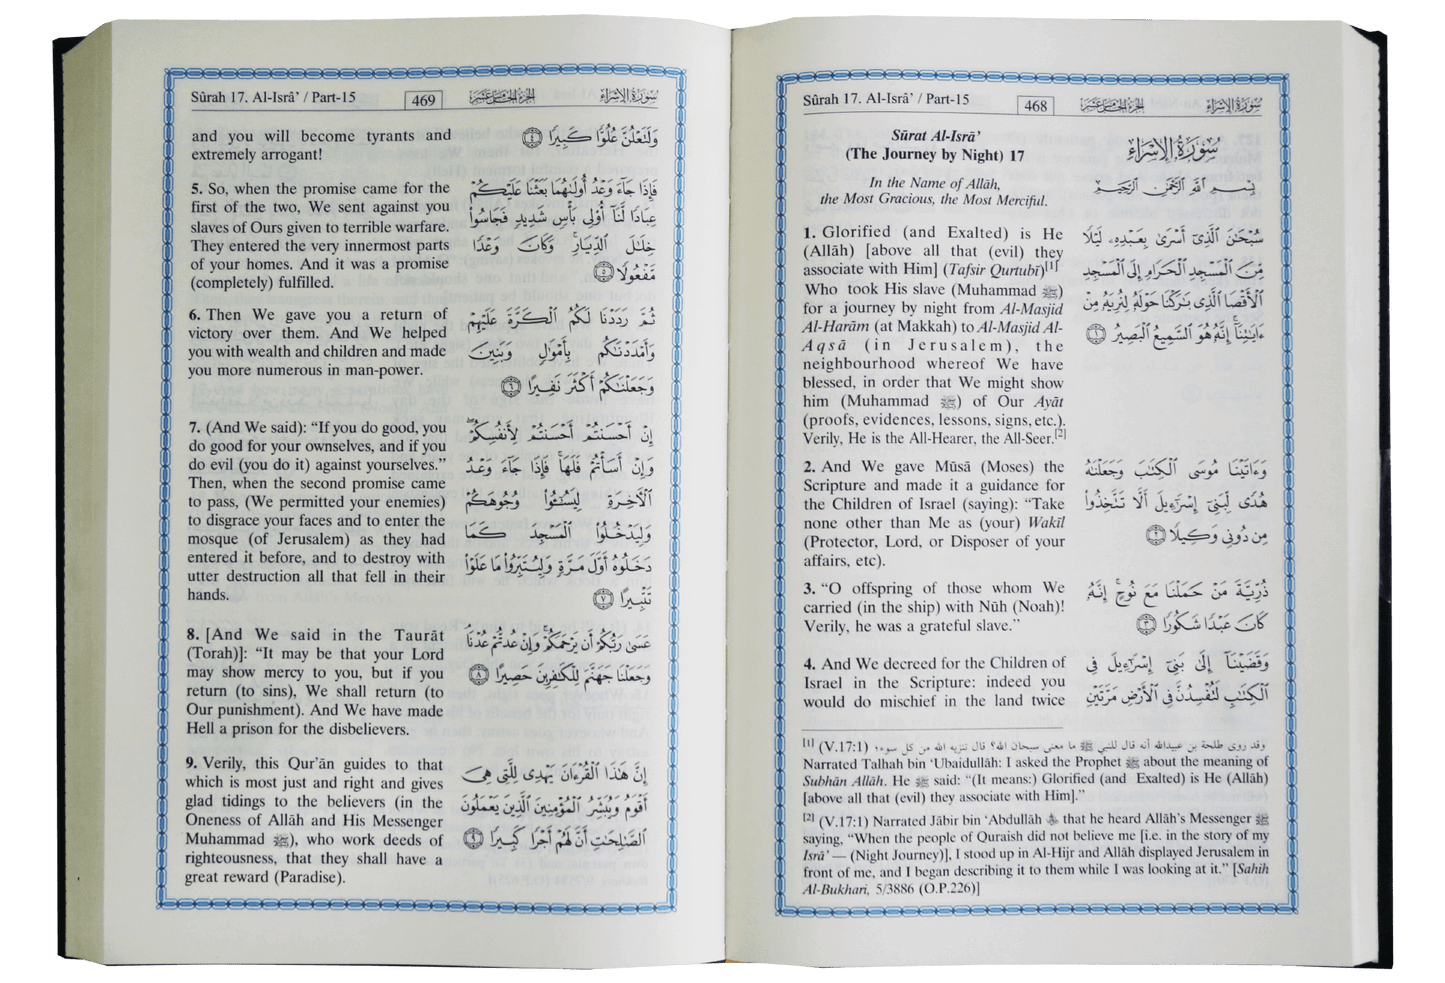 Sûrah 17. Al-Isrâ’ / Part-15
468
الجزء الخامس عشر
سورة الإسراء
Sūrat Al-Isrā’
(The Journey by Night) 17
In the Name of Allāh,
the Most Gracious, the Most Merciful.
1. Glorified (and Exalted) is He
(Allāh) [above all that (evil) they
associate with Him] (Tafsir Qurtubī)[1]
Who took His slave (Muhammad ﷺ)
for a journey by night from Al-Masjid
Al-Harām (at Makkah) to Al-Masjid Al-
Aqsā (in Jerusalem), the
neighbourhood whereof We have
blessed, in order that We might show
him (Muhammad ﷺ) of Our Ayāt
(proofs, evidences, lessons, signs, etc.).
Verily, He is the All-Hearer, the All-Seer.[2]
2. And We gave Mūsā (Moses) the
Scripture and made it a guidance for
the Children of Israel (saying): “Take
none other than Me as (your) Wakīl
(Protector, Lord, or Disposer of your
affairs, etc).
3. “O offspring of those whom We
carried (in the ship) with Nūh (Noah)!
Verily, he was a grateful slave.”
4. And We decreed for the Children of
Israel in the Scripture: indeed you
would do mischief in the land twice
سُورَةُ الإِسْرَاءِ
بِسْمِ اللَّهِ الرَّحْمَٰنِ الرَّحِيمِ
سُبْحَٰنَ ٱلَّذِىٓ أَسْرَىٰ بِعَبْدِهِۦ لَيْلًا
مِّنَ ٱلْمَسْجِدِ ٱلْحَرَامِ إِلَى ٱلْمَسْجِدِ
ٱلْأَقْصَا ٱلَّذِى بَٰرَكْنَا حَوْلَهُۥ لِنُرِيَهُۥ مِنْ
ءَايَٰتِنَآ ۚ إِنَّهُۥ هُوَ ٱلسَّمِيعُ ٱلْبَصِيرُ ١
وَءَاتَيْنَا مُوسَى ٱلْكِتَٰبَ وَجَعَلْنَٰهُ
هُدًى لِّبَنِىٓ إِسْرَٰٓءِيلَ أَلَّا تَتَّخِذُوا۟
مِن دُونِى وَكِيلًا ٢
ذُرِّيَّةَ مَنْ حَمَلْنَا مَعَ نُوحٍ ۚ إِنَّهُۥ
كَانَ عَبْدًا شَكُورًا ٣
وَقَضَيْنَآ إِلَىٰ بَنِىٓ إِسْرَٰٓءِيلَ فِى
ٱلْكِتَٰبِ لَتُفْسِدُنَّ فِى ٱلْأَرْضِ مَرَّتَيْنِ
[1] (V.17:1) وقد روى طلحة بن عبيدالله أنه قال للنبي ﷺ ما معنى سبحان الله؟ قال تنزيه الله من كل سوء؛
Narrated Talhah bin ‘Ubaidullāh: I asked the Prophet ﷺ about the meaning of
Subhān Allāh. He ﷺ said: “(It means:) Glorified (and Exalted) is He (Allāh)
[above all that (evil) they associate with Him].”
[2] (V.17:1) Narrated Jābir bin ‘Abdullāh that he heard Allāh’s Messenger ﷺ
saying, “When the people of Quraish did not believe me [i.e. in the story of my
Isrā’ — (Night Journey)], I stood up in Al-Hijr and Allāh displayed Jerusalem in
front of me, and I began describing it to them while I was looking at it.” [Sahih
Al-Bukhari, 5/3886 (O.P.226)]
Sûrah 17. Al-Isrâ’ / Part-15
469
الجزء الخامس عشر
سورة الإسراء
and you will become tyrants and
extremely arrogant!
5. So, when the promise came for the
first of the two, We sent against you
slaves of Ours given to terrible warfare.
They entered the very innermost parts
of your homes. And it was a promise
(completely) fulfilled.
6. Then We gave you a return of
victory over them. And We helped
you with wealth and children and made
you more numerous in man-power.
7. (And We said): “If you do good, you
do good for your ownselves, and if you
do evil (you do it) against yourselves.”
Then, when the second promise came
to pass, (We permitted your enemies)
to disgrace your faces and to enter the
mosque (of Jerusalem) as they had
entered it before, and to destroy with
utter destruction all that fell in their
hands.
8. [And We said in the Taurāt
(Torah)]: “It may be that your Lord
may show mercy to you, but if you
return (to sins), We shall return (to
Our punishment). And We have made
Hell a prison for the disbelievers.
9. Verily, this Qur’ān guides to that
which is most just and right and gives
glad tidings to the believers (in the
Oneness of Allāh and His Messenger
Muhammad ﷺ), who work deeds of
righteousness, that they shall have a
great reward (Paradise).
وَلَتَعْلُنَّ عُلُوًّا كَبِيرًا ٤
فَإِذَا جَآءَ وَعْدُ أُولَىٰهُمَا بَعَثْنَا عَلَيْكُمْ
عِبَادًا لَّنَآ أُو۟لِى بَأْسٍ شَدِيدٍ فَجَاسُوا۟
خِلَٰلَ ٱلدِّيَارِ ۚ وَكَانَ وَعْدًا
مَّفْعُولًا ٥
ثُمَّ رَدَدْنَا لَكُمُ ٱلْكَرَّةَ عَلَيْهِمْ
وَأَمْدَدْنَٰكُم بِأَمْوَٰلٍ وَبَنِينَ
وَجَعَلْنَٰكُمْ أَكْثَرَ نَفِيرًا ٦
إِنْ أَحْسَنتُمْ أَحْسَنتُمْ لِأَنفُسِكُمْ ۖ
وَإِنْ أَسَأْتُمْ فَلَهَا ۚ فَإِذَا جَآءَ وَعْدُ
ٱلْءَاخِرَةِ لِيَسُـۥٓـُٔوا۟ وُجُوهَكُمْ
وَلِيَدْخُلُوا۟ ٱلْمَسْجِدَ كَمَا
دَخَلُوهُ أَوَّلَ مَرَّةٍ وَلِيُتَبِّرُوا۟ مَا عَلَوْا۟
تَتْبِيرًا ٧
عَسَىٰ رَبُّكُمْ أَن يَرْحَمَكُمْ ۚ وَإِنْ عُدتُّمْ عُدْنَا ۘ
وَجَعَلْنَا جَهَنَّمَ لِلْكَٰفِرِينَ حَصِيرًا ٨
إِنَّ هَٰذَا ٱلْقُرْءَانَ يَهْدِى لِلَّتِى هِىَ
أَقْوَمُ وَيُبَشِّرُ ٱلْمُؤْمِنِينَ ٱلَّذِينَ يَعْمَلُونَ
ٱلصَّٰلِحَٰتِ أَنَّ لَهُمْ أَجْرًا كَبِيرًا ٩